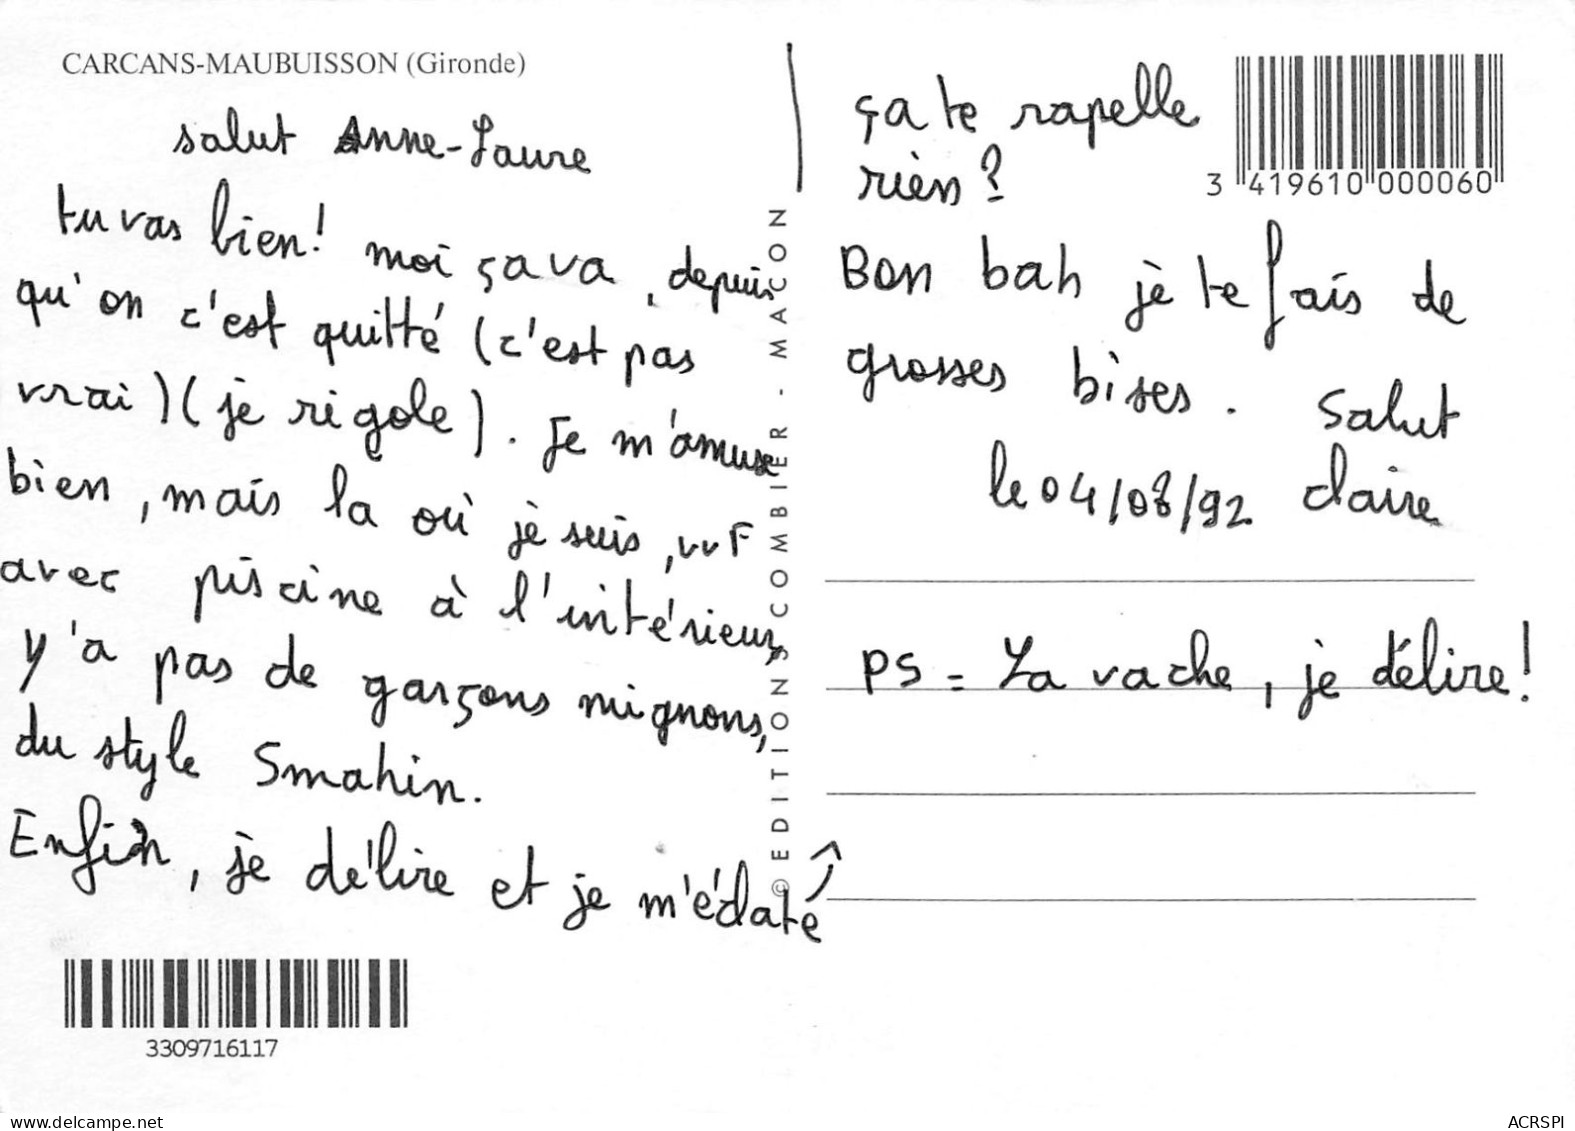 CARCANS-MAUBUISSON (Gironde)
salut Anne-Laure
tu vas bien! moi ça va, depuis
qu'on c'est quitté (c'est pas
vrai) (je rigole). Je m'amuse
bien, mais la où je suis, VVF
avec piscine à l'intérieur,
y'a pas de garçons mignons,
du style Smahin.
Enfin, je délire et je m'éclate
3309716117
© EDITIONS COMBIER - MACON
ça te rapelle
rien?
Bon bah je te fais de
grosses bises. Salut
le 04/08/92 Claire
PS = La vache, je délire!
3 419610 000060
delcampe.net
ACRSPI